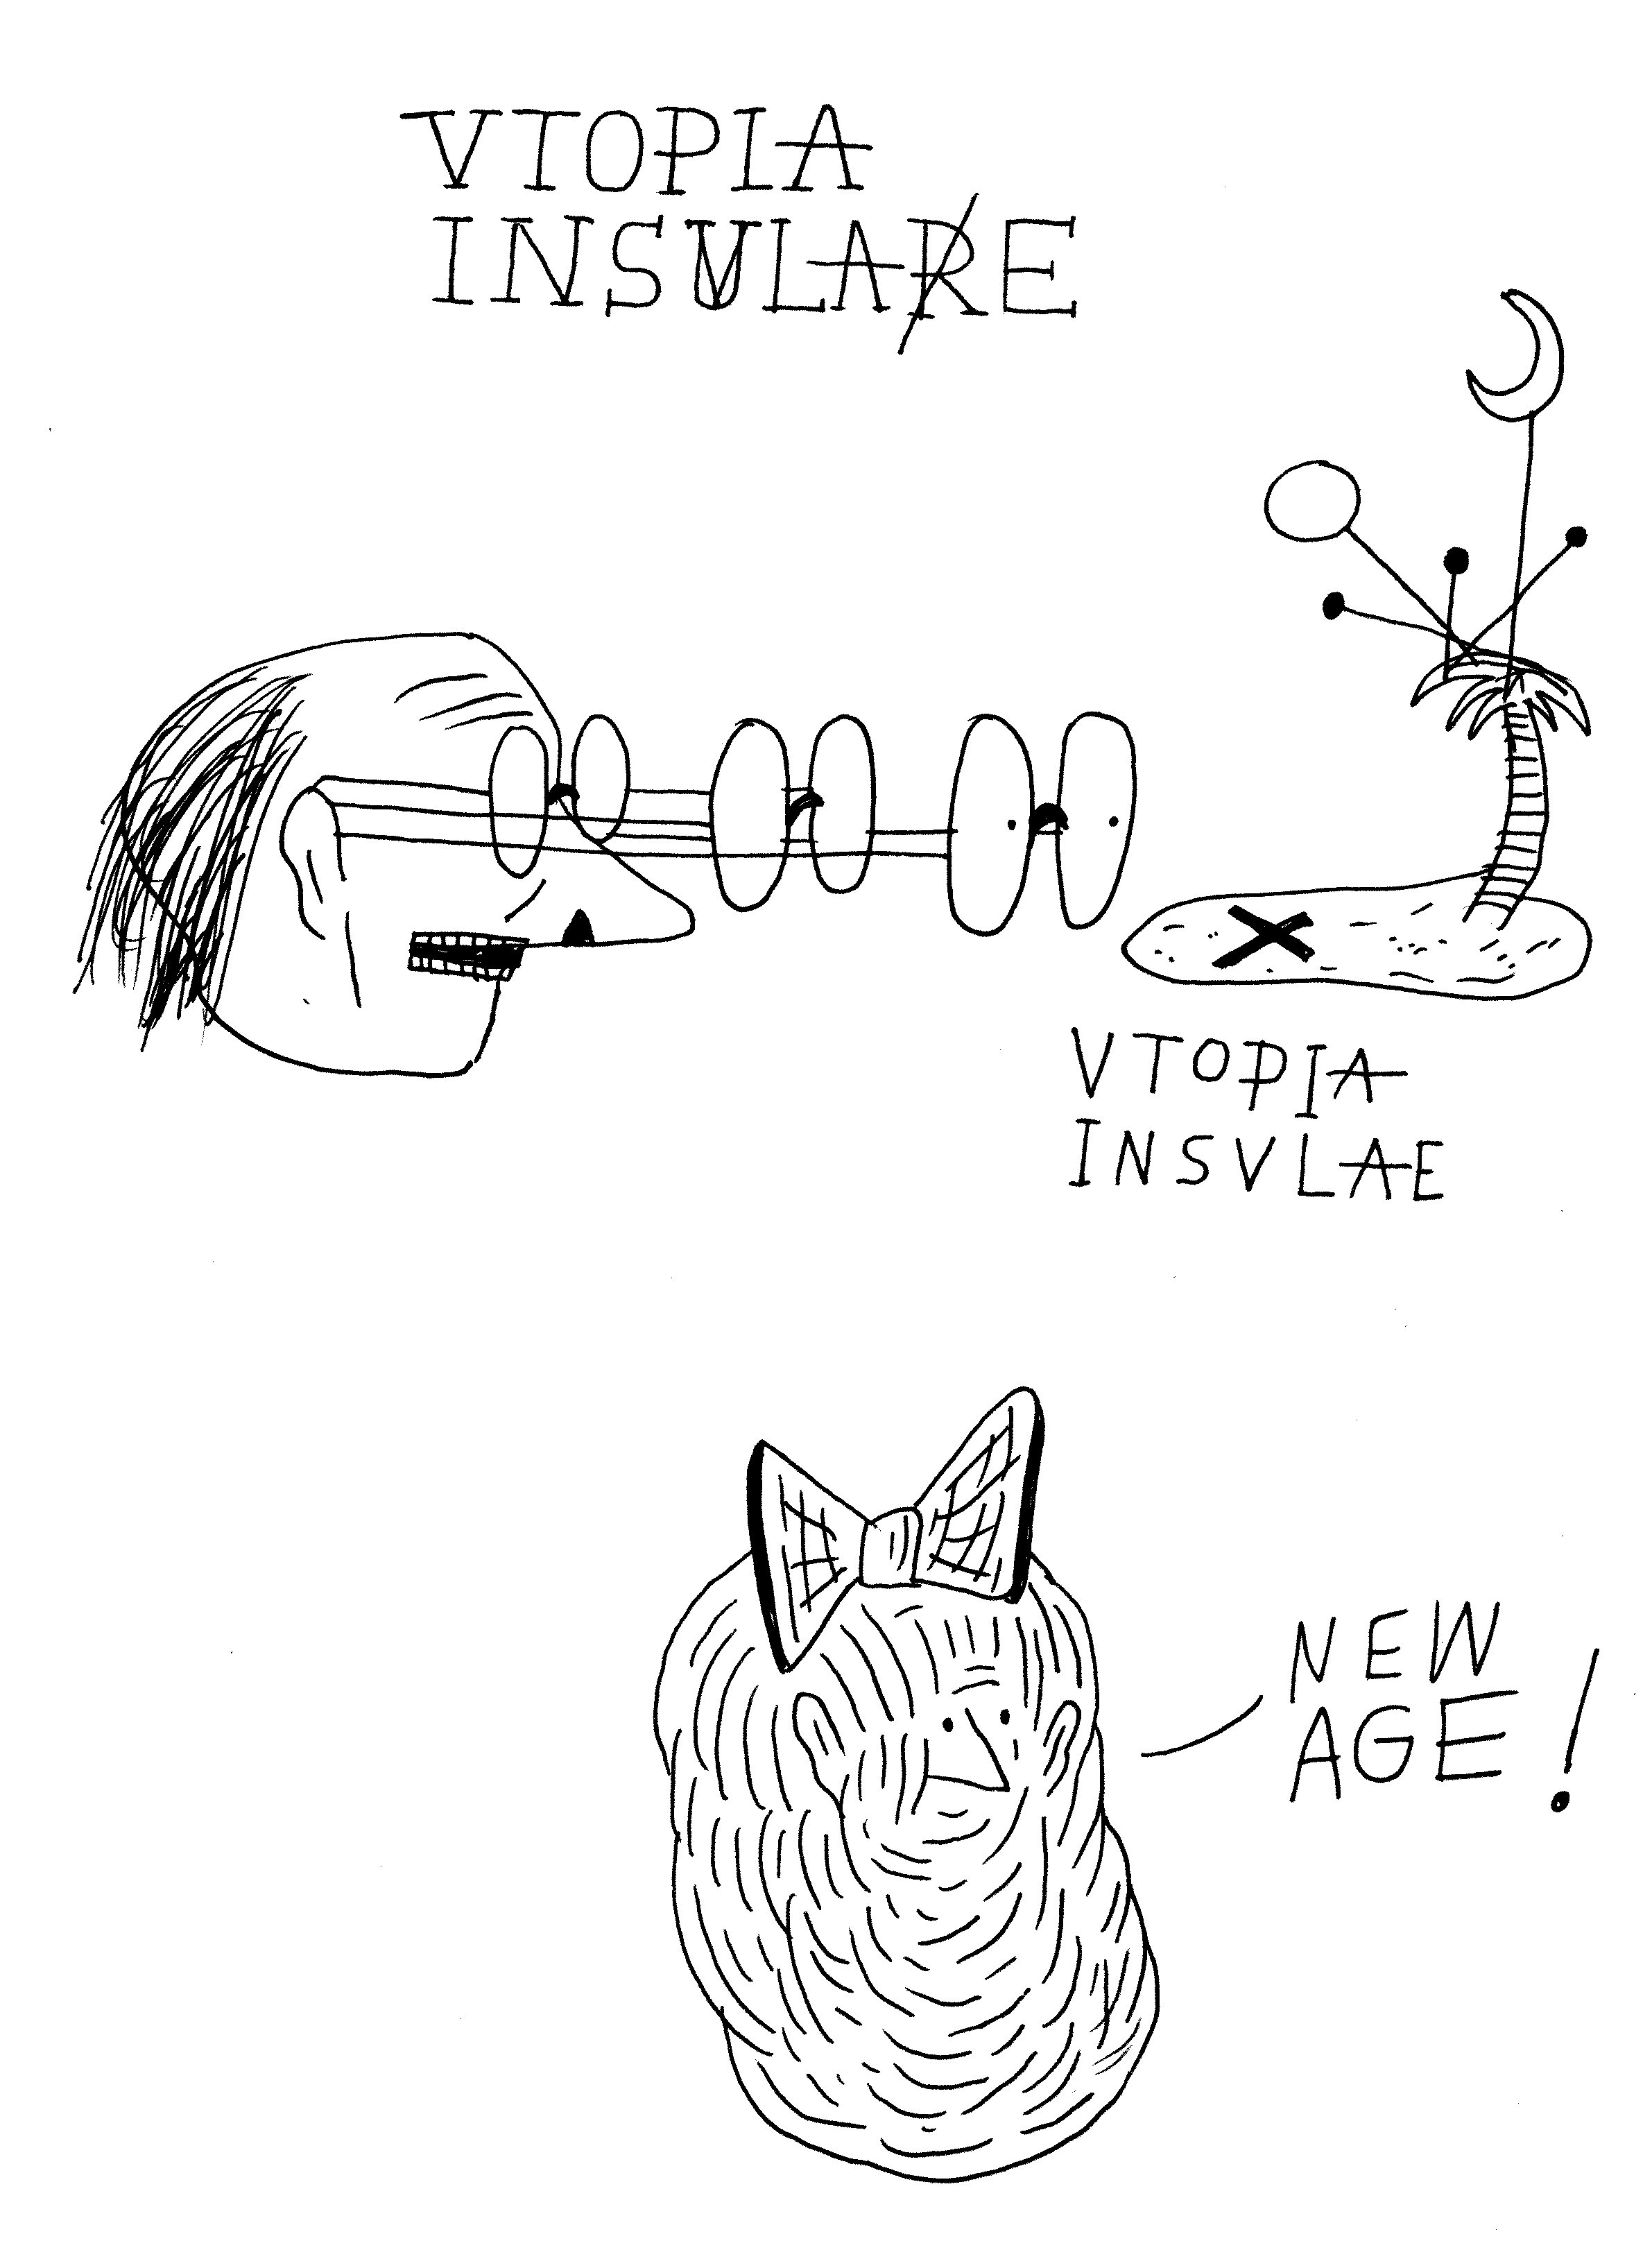 VTOPIA
INSULARE
VTOPIA
INSVLAE
NEW
AGE!